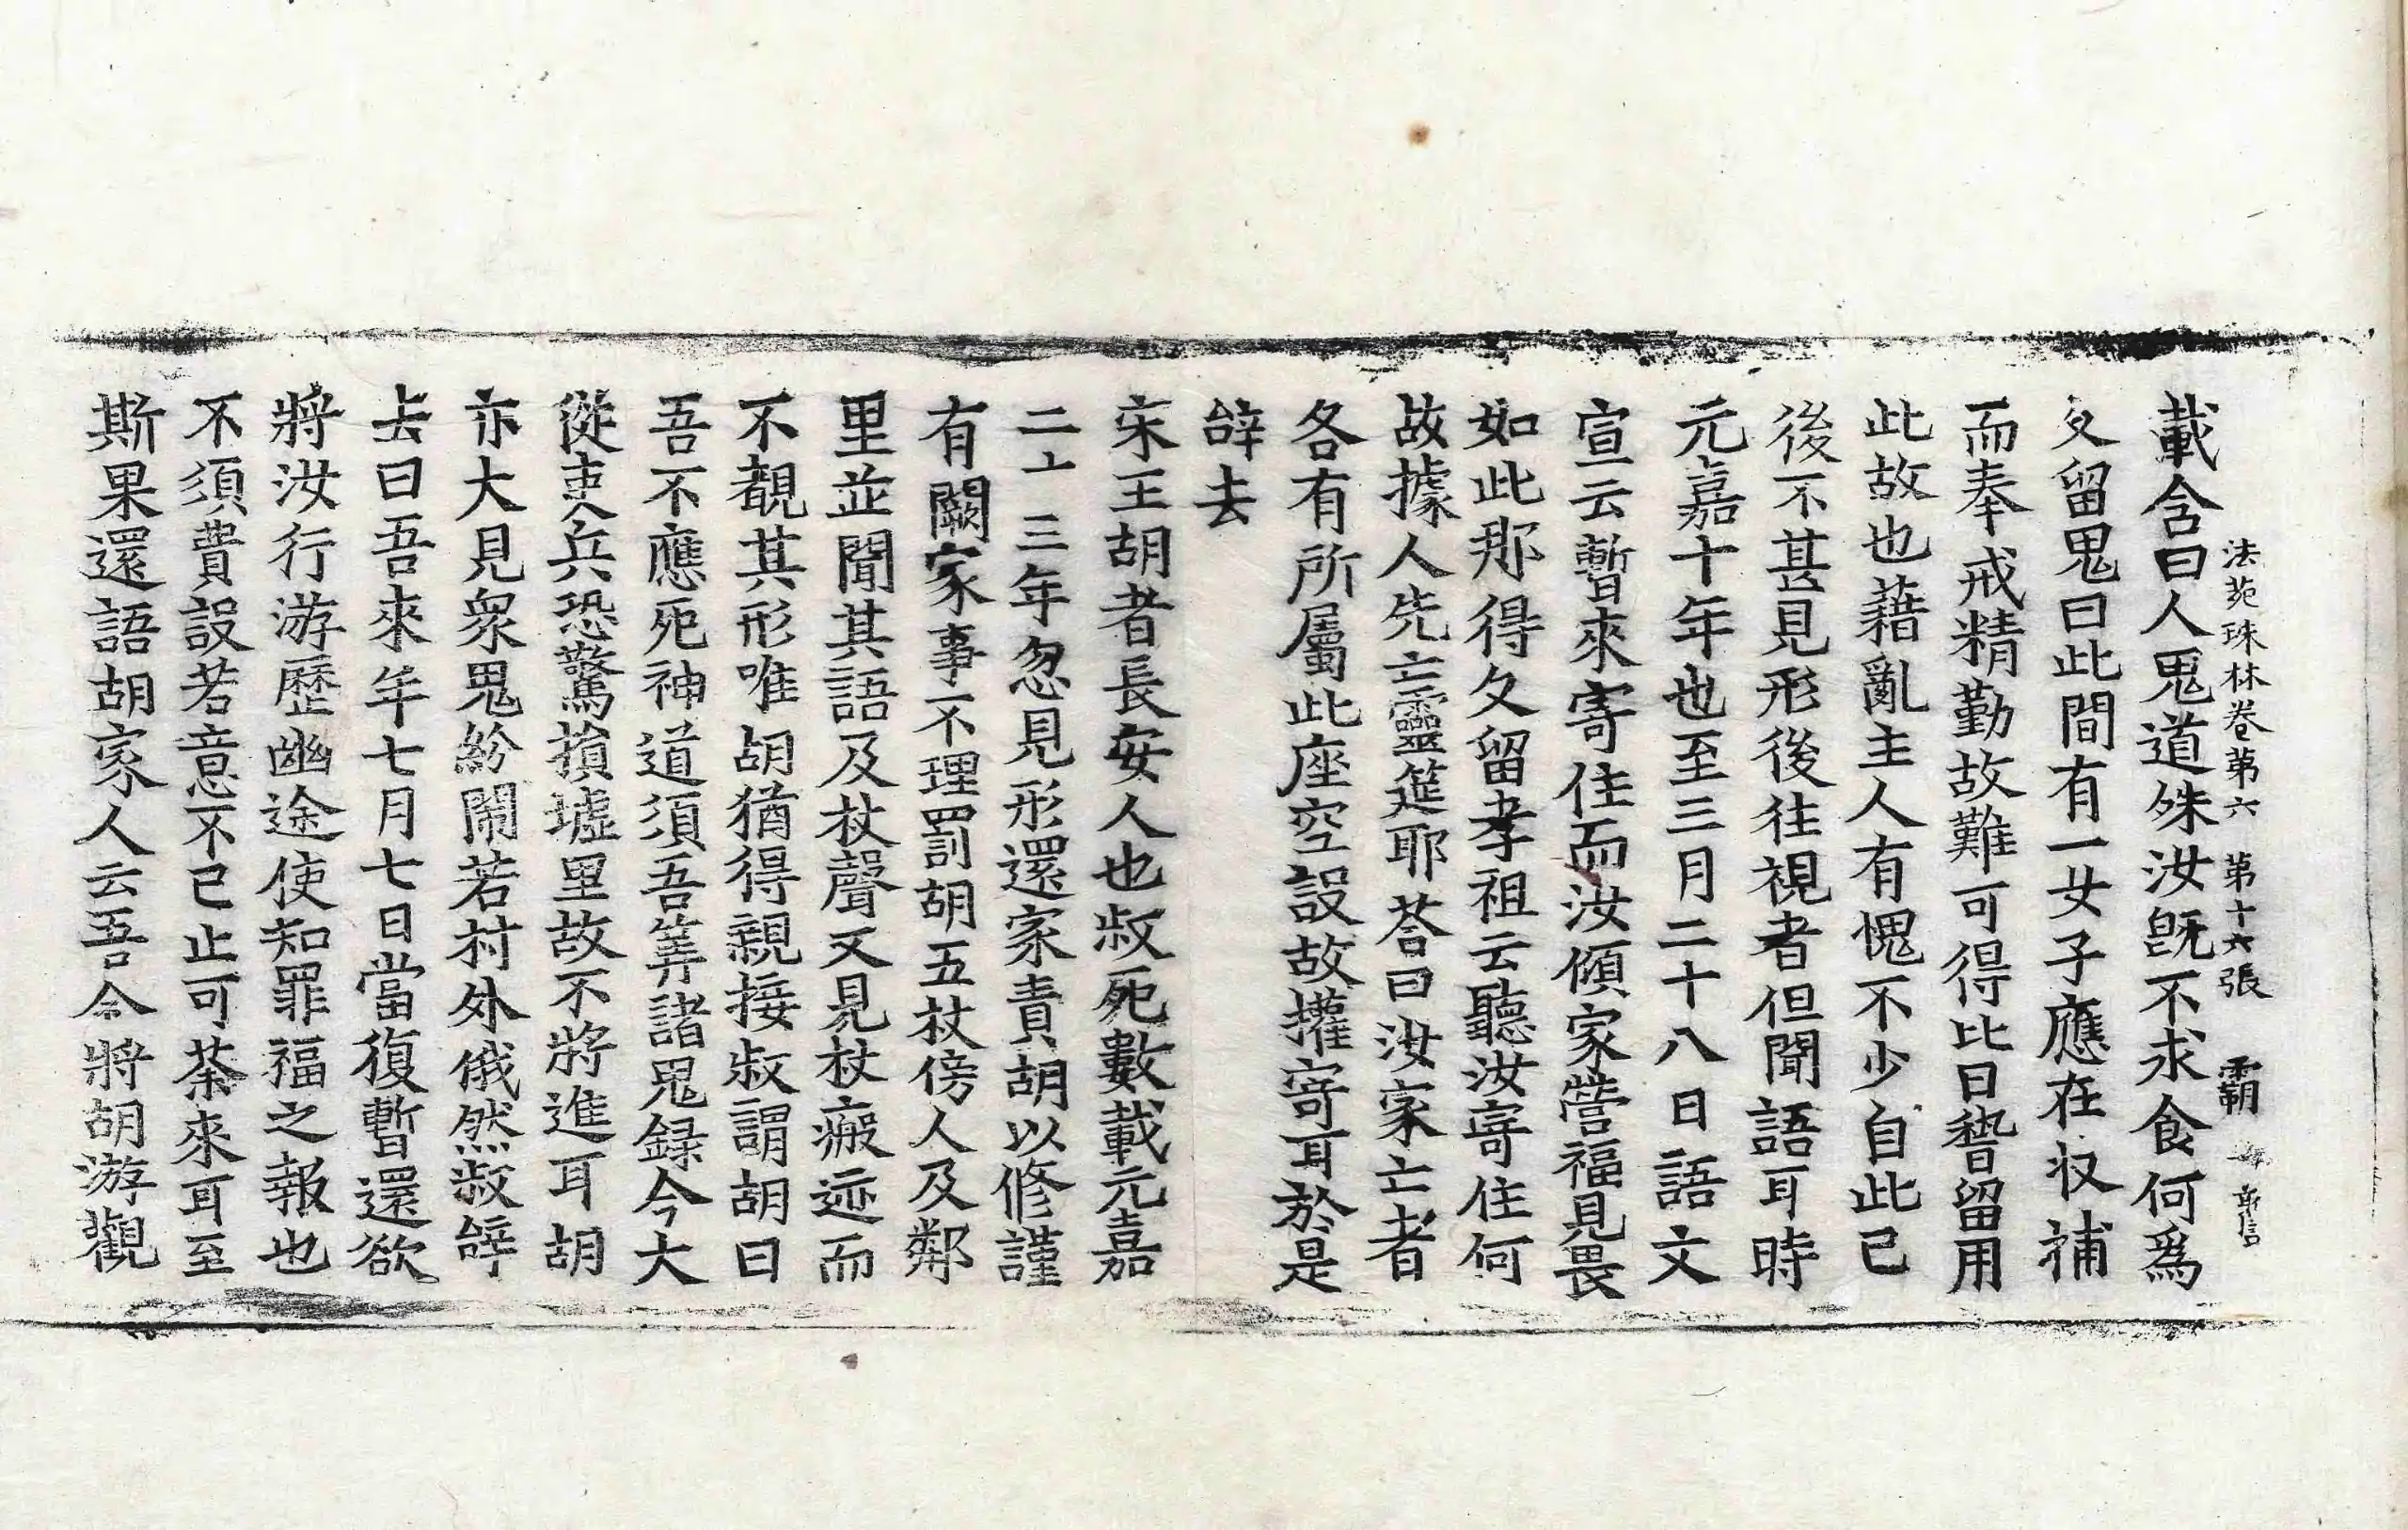 法苑珠林卷第六 第十六張 霸
載含曰人鬼道殊汝旣不求食何爲
久留鬼曰此間有一女子應在收補
而奉戒精勤故難可得比日稽留用
此故也藉亂主人有愧不少自此已
後不甚見形後往視者但聞語耳時
元嘉十年也至三月二十八日語文
宣云暫來寄住而汝傾家營福見畏
如此那得久留孝祖云聽汝寄住何
故據人先亡靈筵耶荅曰汝家亡者
各有所屬此座空設故權寄耳於是
辝去
宋王胡者長安人也叔死數載元嘉
二十三年忽見形還家責胡以修謹
有闕家事不理罰胡五杖傍人及鄰
里並聞其語及杖聲又見杖瘢迹而
不覩其形唯胡猶得親接叔謂胡曰
吾不應死神道須吾筭諸鬼録今大
從吏兵恐驚損墟里故不將進耳胡
亦大見衆鬼紛閙若村外俄然叔辝
去曰吾來年七月七日當復暫還欲
將汝行游歷幽途使知罪福之報也
不須費設若意不已止可茶來耳至
斯果還語胡家人云吾今將胡游觀